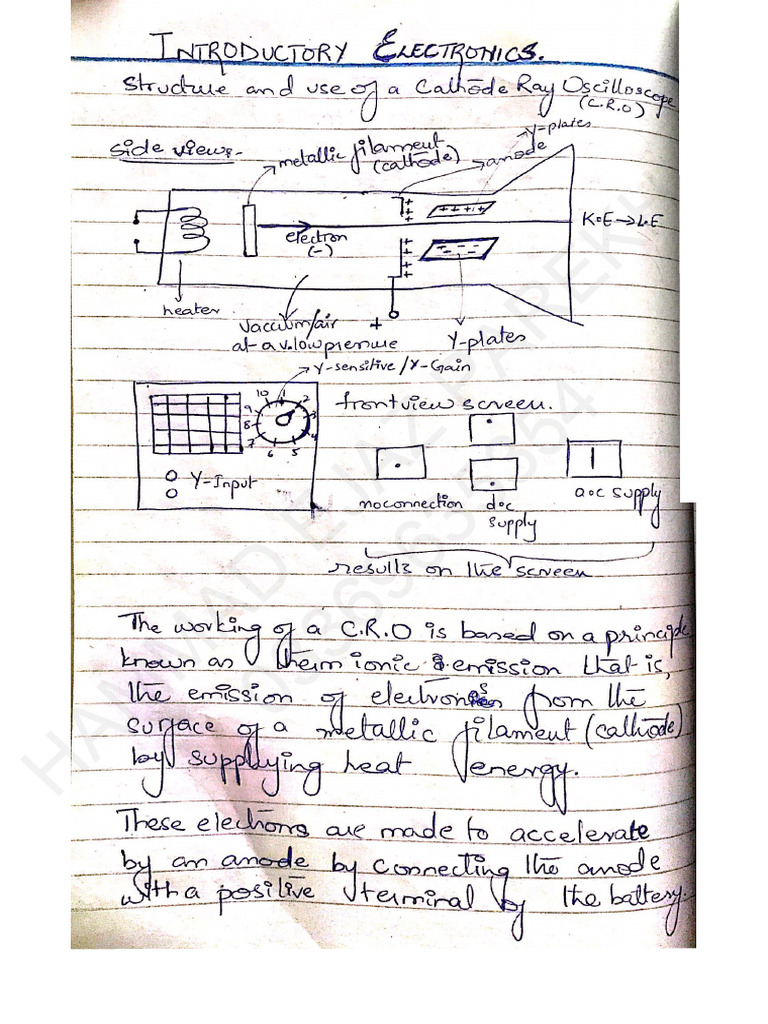 INTRODUCTORY ELECTRONICS.
Structure and use of a Cathode Ray Oscilloscope
(C.R.O)
Side view:-
metallic filament
(cathode)
anode
Y-plates
electron
(-)
K.E → L.E
heater
vaccum/air
at a v. low pressure
+
Y-plates
Y-sensitive/Y-Gain
10 1 2 3 4 5 6 7 8 9
Y-Input
front view screen.
no connection
d.c
supply
a.c supply
results on the screen
The working of a C.R.O is based on a principle
known as thermionic emission that is,
the emission of electrons from the
surface of a metallic filament (cathode)
by supplying heat energy.
These electrons are made to accelerate
by an anode by connecting the anode
with a positive terminal by the battery.
HAMMAD EJAZ PAREKH